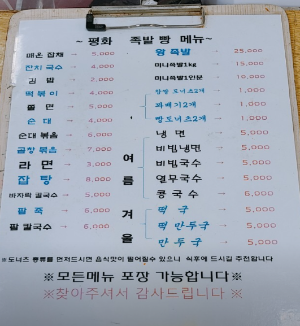 ~ 평화 족발 빵 메뉴 ~
매운 잡채 → 5,000
잔치국수 → 4,000
김밥 → 2,000
떡볶이 → 4,000
쫄면 → 5,000
순대 → 4,000
순대 볶음 → 6,000
곱창볶음 → 7,000
라면 → 3,000
잡빵 → 8,000
바지락 칼국수 → 5,000
팥죽 → 6,000
팥칼국수 → 6,000
왕족발 → 25,000
미니족발1kg → 15,000
미니족발1인분 → 10,000
찹쌀 도너츠2개 → 1,000
꽈배기2개 → 1,000
빵도너츠2개 → 1,000
여름
냉면 → 5,000
비빔냉면 → 5,000
비빔국수 → 5,000
열무국수 → 5,000
콩국수 → 6,000
겨울
떡국 → 5,000
떡만두국 → 5,000
만두국 → 5,000
※도너츠 종류를 먼저드시면 음식맛이 떨어질수 있으니 식후에 드시길 추천합니다
※모든메뉴 포장 가능합니다※
※찾아주셔서 감사드립니다※